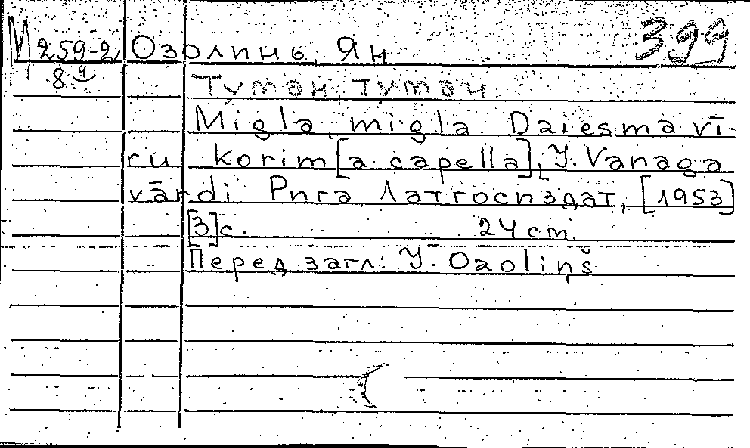 М 259-2 Озолинь, Ян 399
8°
Туман, туман
Migla, migla. Dziesma vī-
ru korim [a capella], J. Vanaga
vārdi. Рига, Латгосиздат, [1953]
[3] с. 24 cm.
Перед загл: J. Ozoliņš